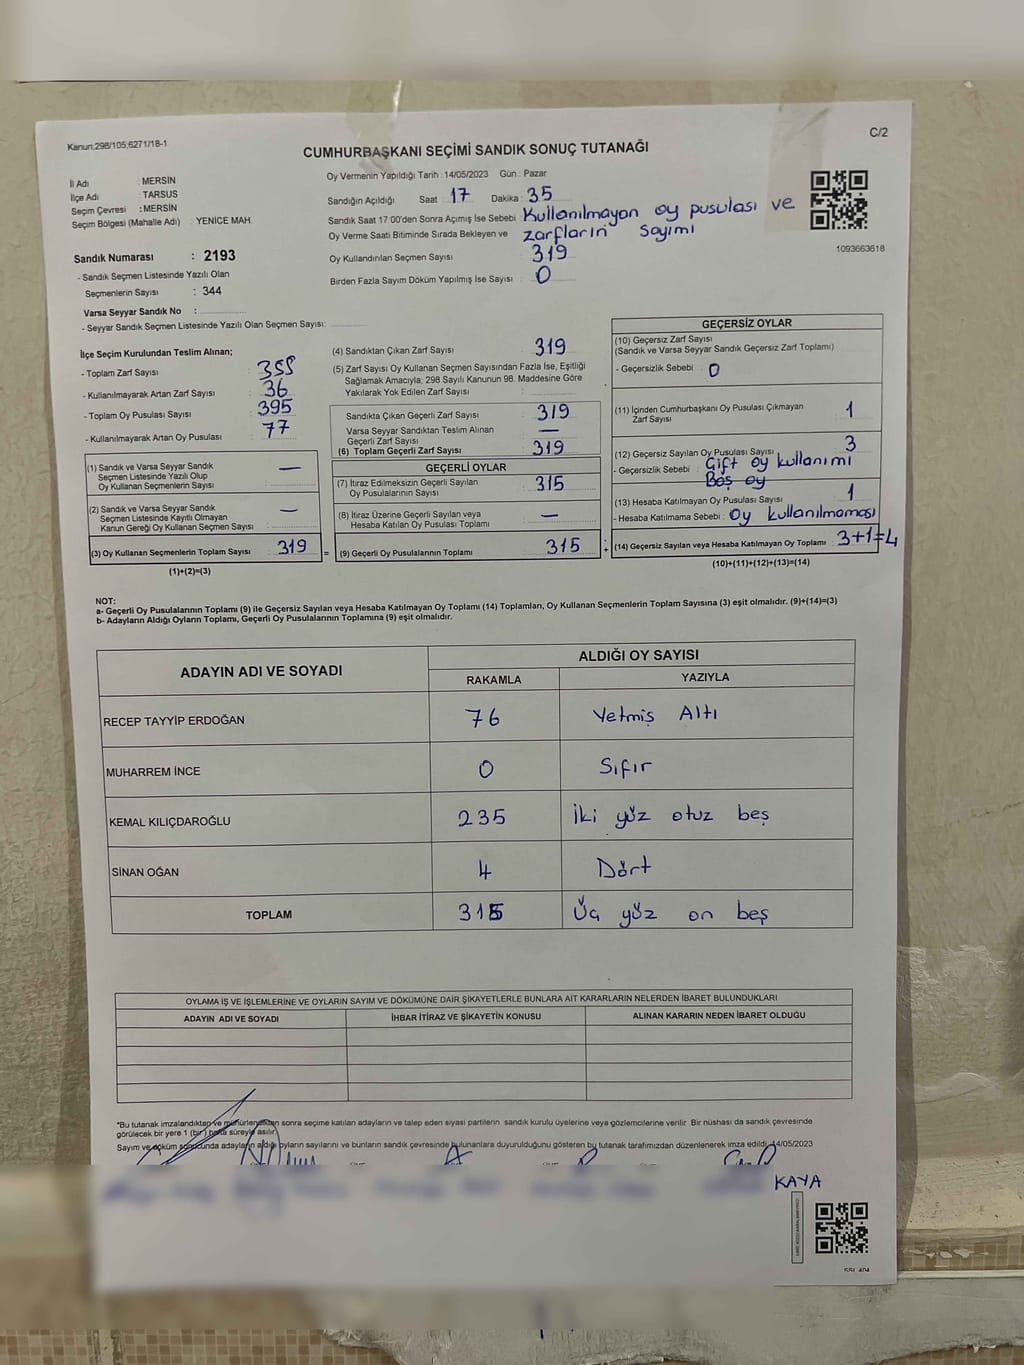 Kanun:298/105,6271/18-1
C/2
CUMHURBAŞKANI SEÇİMİ SANDIK SONUÇ TUTANAĞI
İl Adı : MERSİN
İlçe Adı : TARSUS
Seçim Çevresi : MERSİN
Seçim Bölgesi (Mahalle Adı) : YENİCE MAH.
Sandık Numarası : 2193
- Sandık Seçmen Listesinde Yazılı Olan
Seçmenlerin Sayısı : 344
Varsa Seyyar Sandık No :
- Seyyar Sandık Seçmen Listesinde Yazılı Olan Seçmen Sayısı:
Oy Vermenin Yapıldığı Tarih : 14/05/2023 Gün : Pazar
Sandığın Açıldığı Saat 17 Dakika : 35
Sandık Saat 17:00'den Sonra Açımış İse Sebebi : Kullanılmayan oy pusulası ve
Oy Verme Saati Bitiminde Sırada Bekleyen ve zarfların sayımı
Oy Kullandırılan Seçmen Sayısı : 319
Birden Fazla Sayım Döküm Yapılmış İse Sayısı : 0
1093663618
İlçe Seçim Kurulundan Teslim Alınan;
- Toplam Zarf Sayısı : 355
- Kullanılmayarak Artan Zarf Sayısı : 36
- Toplam Oy Pusulası Sayısı : 395
- Kullanılmayarak Artan Oy Pusulası : 77
(1) Sandık ve Varsa Seyyar Sandık
Seçmen Listesinde Yazılı Olup
Oy Kullanan Seçmenlerin Sayısı : —
(2) Sandık ve Varsa Seyyar Sandık
Seçmen Listesinde Kayıtlı Olmayan
Kanun Gereği Oy Kullanan Seçmen Sayısı : —
(3) Oy Kullanan Seçmenlerin Toplam Sayısı : 319 =
(1)+(2)=(3)
(4) Sandıktan Çıkan Zarf Sayısı : 319
(5) Zarf Sayısı Oy Kullanan Seçmen Sayısından Fazla İse, Eşitliği
Sağlamak Amacıyla; 298 Sayılı Kanunun 98. Maddesine Göre
Yakılarak Yok Edilen Zarf Sayısı :
Sandıkta Çıkan Geçerli Zarf Sayısı : 319
Varsa Seyyar Sandıktan Teslim Alınan
Geçerli Zarf Sayısı : —
(6) Toplam Geçerli Zarf Sayısı : 319
GEÇERLİ OYLAR
(7) İtiraz Edilmeksizin Geçerli Sayılan
Oy Pusulalarının Sayısı : 315
(8) İtiraz Üzerine Geçerli Sayılan veya
Hesaba Katılan Oy Pusulası Toplamı : —
(9) Geçerli Oy Pusulalarının Toplamı : 315 +
GEÇERSİZ OYLAR
(10) Geçersiz Zarf Sayısı
(Sandık ve Varsa Seyyar Sandık Geçersiz Zarf Toplamı)
- Geçersizlik Sebebi : 0
(11) İçinden Cumhurbaşkanı Oy Pusulası Çıkmayan
Zarf Sayısı : 1
(12) Geçersiz Sayılan Oy Pusulası Sayısı : 3
- Geçersizlik Sebebi : Çift oy kullanımı
Boş oy
(13) Hesaba Katılmayan Oy Pusulası Sayısı : 1
- Hesaba Katılmama Sebebi : Oy kullanılmaması
(14) Geçersiz Sayılan veya Hesaba Katılmayan Oy Toplamı : 3+1=4
(10)+(11)+(12)+(13)=(14)
NOT:
a- Geçerli Oy Pusulalarının Toplamı (9) ile Geçersiz Sayılan veya Hesaba Katılmayan Oy Toplamı (14) Toplamları, Oy Kullanan Seçmenlerin Toplam Sayısına (3) eşit olmalıdır. (9)+(14)=(3)
b- Adayların Aldığı Oyların Toplamı, Geçerli Oy Pusulalarının Toplamına (9) eşit olmalıdır.
ADAYIN ADI VE SOYADI
ALDIĞI OY SAYISI
RAKAMLA YAZIYLA
RECEP TAYYİP ERDOĞAN 76 Yetmiş Altı
MUHARREM İNCE 0 Sıfır
KEMAL KILIÇDAROĞLU 235 İki yüz otuz beş
SİNAN OĞAN 4 Dört
TOPLAM 315 Üç yüz on beş
OYLAMA İŞ VE İŞLEMLERİNE VE OYLARIN SAYIM VE DÖKÜMÜNE DAİR ŞİKAYETLERLE BUNLARA AİT KARARLARIN NELERDEN İBARET BULUNDUKLARI
ADAYIN ADI VE SOYADI İHBAR İTİRAZ VE ŞİKAYETİN KONUSU ALINAN KARARIN NEDEN İBARET OLDUĞU
*Bu tutanak imzalandıktan ve mühürlendikten sonra seçime katılan adayların ve talep eden siyasi partilerin sandık kurulu üyelerine veya gözlemcilerine verilir. Bir nüshası da sandık çevresinde
görülecek bir yere 1 (bir) hafta süreyle asılır.
Sayım ve döküm sonucunda adayların aldığı oyların sayılarını ve bunların sandık çevresinde bulunanlara duyurulduğunu gösteren bu tutanak tarafımızdan düzenlenerek imza edildi. 14/05/2023
KAYA